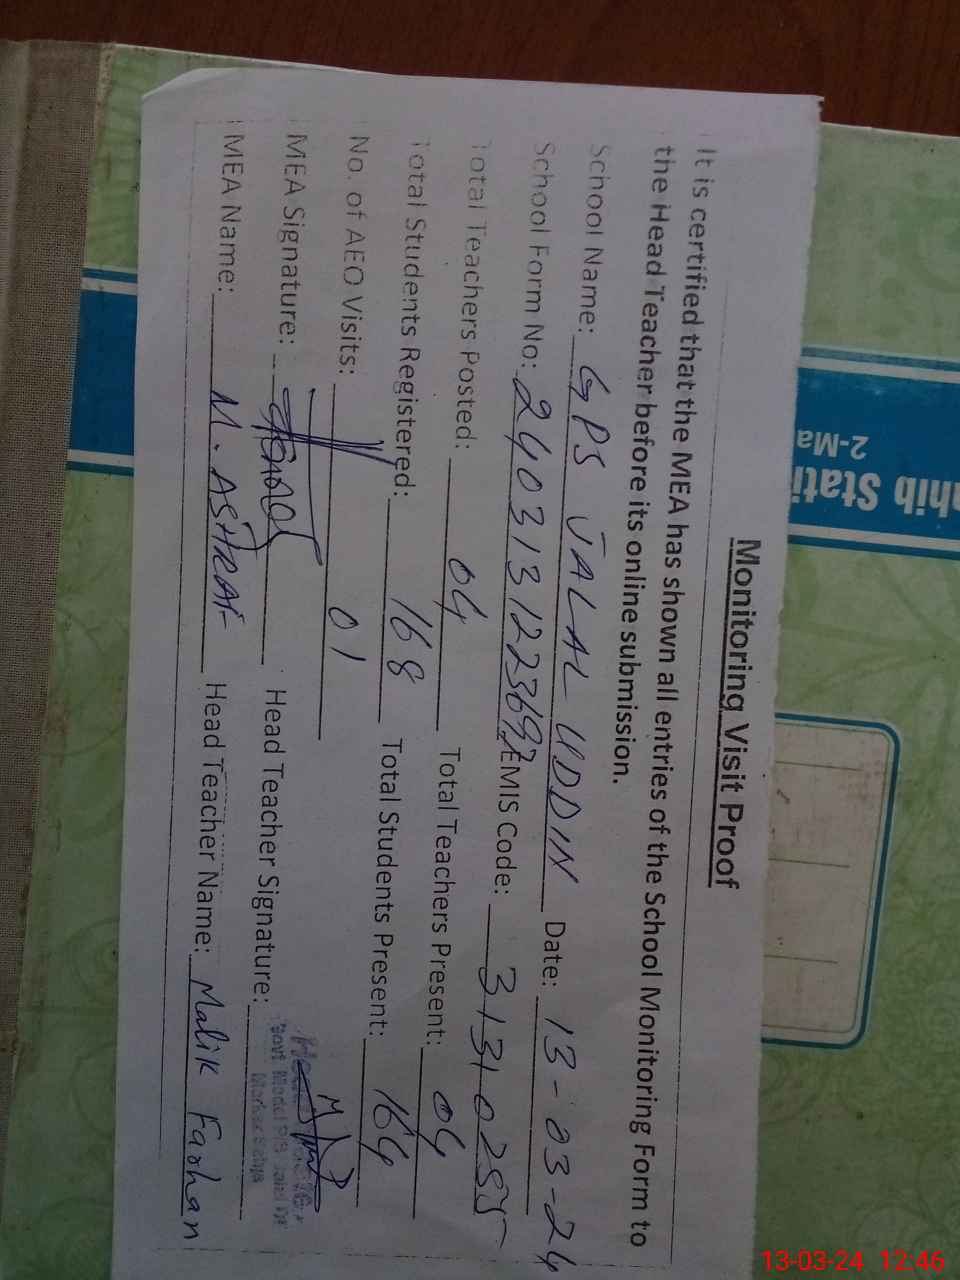 Monitoring Visit Proof
It is certified that the MEA has shown all entries of the School Monitoring Form to
the Head Teacher before its online submission.
School Name: GPS JALAL UDDIN Date: 13-03-24
School Form No: 2403131223697 EMIS Code: 31310255
Total Teachers Posted: 04 Total Teachers Present: 04
Total Students Registered: 168 Total Students Present: 164
No. of AEO Visits: 01
MEA Signature: Head Teacher Signature:
MEA Name: M. ASHRAF Head Teacher Name: Malik Farhan
Govt Model P/S
hib Stati
2-Ma
13-03-24 12:46